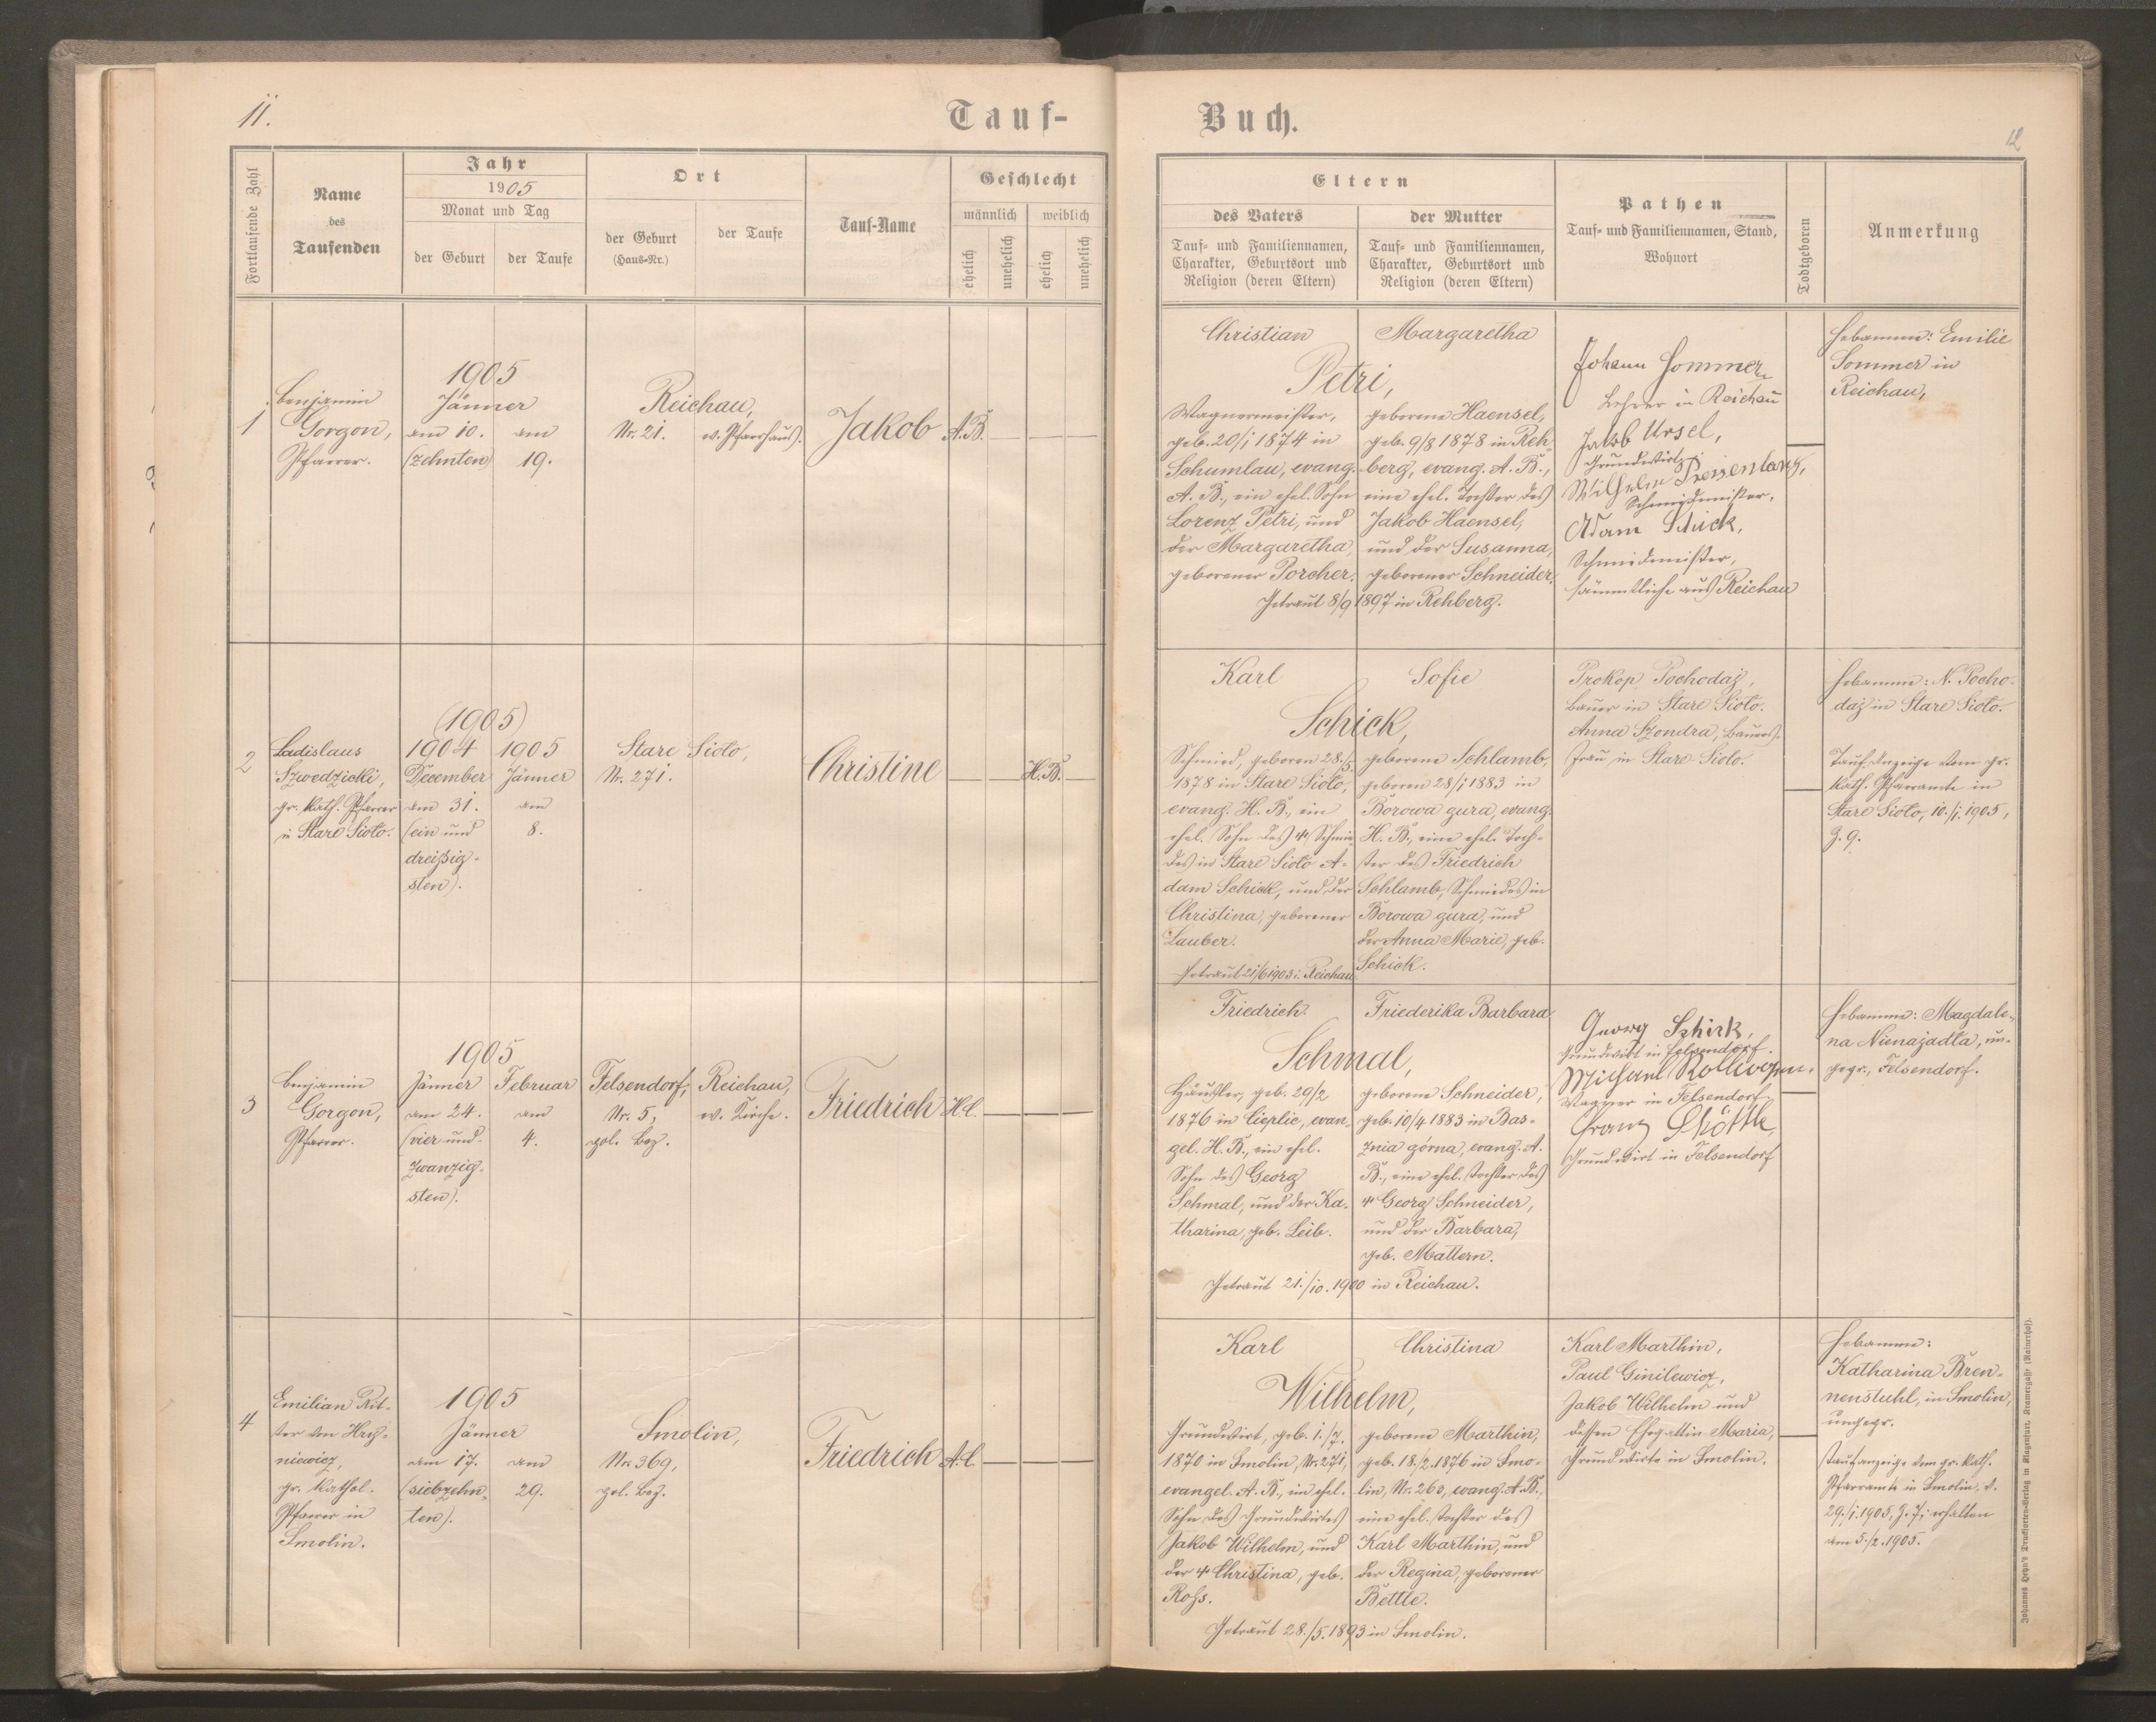 11.
Tauf-
Buch.
12
Fortlaufende Zahl
Name
des
Taufenden
Jahr
1905
Monat und Tag
der Geburt
der Taufe
Ort
der Geburt
(Haus-Nr.)
der Taufe
Tauf-Name
Geschlecht
männlich
weiblich
ehelich
unehelich
ehelich
unehelich
Eltern
des Vaters
Tauf- und Familiennamen,
Charakter, Geburtsort und
Religion (deren Eltern)
der Mutter
Tauf- und Familiennamen,
Charakter, Geburtsort und
Religion (deren Eltern)
Pathen
Tauf- und Familiennamen, Stand,
Wohnort
Todtgeboren
Anmerkung
1
Benjamin
Gorgon,
Pfarrer.
1905
Jänner
am 10.
(zehnten)
am
19.
Reichau,
Nr. 21.
ev. Pfarrhaus.
Jakob
A.B.
Christian
Margaretha
Petri,
Wagnermeister,
geb. 20/1 1874 in
Schumlau, evang.
A. B., ein ehel. Sohn
Lorenz Petri, und
der Margaretha,
geborener Porcher.
geborene Haensel,
geb. 9/8 1878 in Reh-
berg, evang. A. B.,
eine ehel. Tochter des
Jakob Haensel,
und der Susanna,
geborener Schneider.
Getraut 8/9 1897 in Rehberg.
Johann Sommer
Lehrer in Reichau
Jakob Ursel,
Grundwirt
Wilhelm
Schmiedmeister,
Adam Schick,
Schmiedmeister,
sämmtliche aus Reichau
Hebamme: Emilie
Sommer in
Reichau,
2
Ladislaus
Szwedzicki,
gr. kath. Pfarrer
in Stare Sioło.
(1905)
1904
December
am 31.
(ein und
dreißig-
sten).
1905
Jänner
am
8.
Stare Sioło,
Nr. 271.
Christine
H.B.
Karl
Sofie
Schick,
Schmied, geboren 28./5.
1878 in Stare Sioło,
evang. H. B., ein
ehel. Sohn des † Schmie-
des in Stare Sioło A-
dam Schick, und der
Christina, geborener
Lauber.
Getraut 21/6 1903 i. Reichau
geborene Schlamb,
geboren 28/1 1883 in
Borowa gura, evang.
H. B., eine ehel. Toch-
ter des Friedrich
Schlamb, Schmiedes in
Borowa gura, und
der Anna Marie, geb.
Schick.
Prokop Pochodaj,
Bauer in Stare Sioło.
Anna Szondra, Bauers-
frau in Stare Sioło.
Hebamme: N. Pocho-
daj in Stare Sioło.
Tauf-Anzeige vom gr.
kath. Pfarramte in
Stare Sioło, 10./1. 1905,
Z. 9.
3
Benjamin
Gorgon,
Pfarrer.
1905
Jänner
am 24.
(vier und
zwanzig-
sten).
Februar
am
4.
Felsendorf,
Nr. 5,
pol. Bez.
Reichau,
ev. Kirche.
Friedrich
H.C.
Friedrich
Friederika Barbara
Schmal,
Häusler, geb. 29/2
1876 in Cieplic, evan-
gel. H. B., ein ehel.
Sohn des Georg
Schmal, und der Ka-
tharina, geb. Leib.
geborene Schneider,
geb. 10/4 1883 in Bas-
znia górna, evang. A.
B., eine ehel. Tochter des
† Georg Schneider,
und der Barbara,
geb. Mattern.
Getraut 21./10. 1900 in Reichau.
Georg Schick,
Grundwirt in Felsendorf.
Michael Kollwagen.
Wagner in Felsendorf
Franz
Grundwirt in Felsendorf
Hebamme: Magdale-
na Nienajadła, un-
gepr., Felsendorf.
4
Emilian Rit-
ter von Hry-
niewicz,
gr. kathol.
Pfarrer in
Smolin.
1905
Jänner
am 17.
(siebzehn-
ten).
am
29.
Smolin,
Nr. 369,
pol. Bez.
Friedrich
A.C.
Karl
Christina
Wilhelm,
Grundwirt, geb. 1./7.
1870 in Smolin, Nr. 271,
evangel. A. B., ein ehel.
Sohn des Grundwirtes
Jakob Wilhelm, und
der † Christina, geb.
Rohs.
geborene Marthin,
geb. 18./2. 1876 in Smo-
lin, Nr. 260, evang. A. B.,
eine ehel. Tochter des
Karl Marthin, und
der Regina, geborener
Bettle.
Getraut 28./5. 1893 in Smolin.
Karl Marthin,
Paul Ginilewicz,
Jakob Wilhelm und
dessen Ehegattin Maria,
Grundwirte in Smolin.
Hebamme:
Katharina Bren-
nenstuhl, in Smolin,
ungepr.
Taufanzeige vom gr. kath.
Pfarramte in Smolin, d.
29./1. 1905, Z. 7, erhalten
am 5./2. 1905.
Johannes Heyn's Drucksorten-Verlag in Klagenfurt, Kramergasse (Rainerhof).